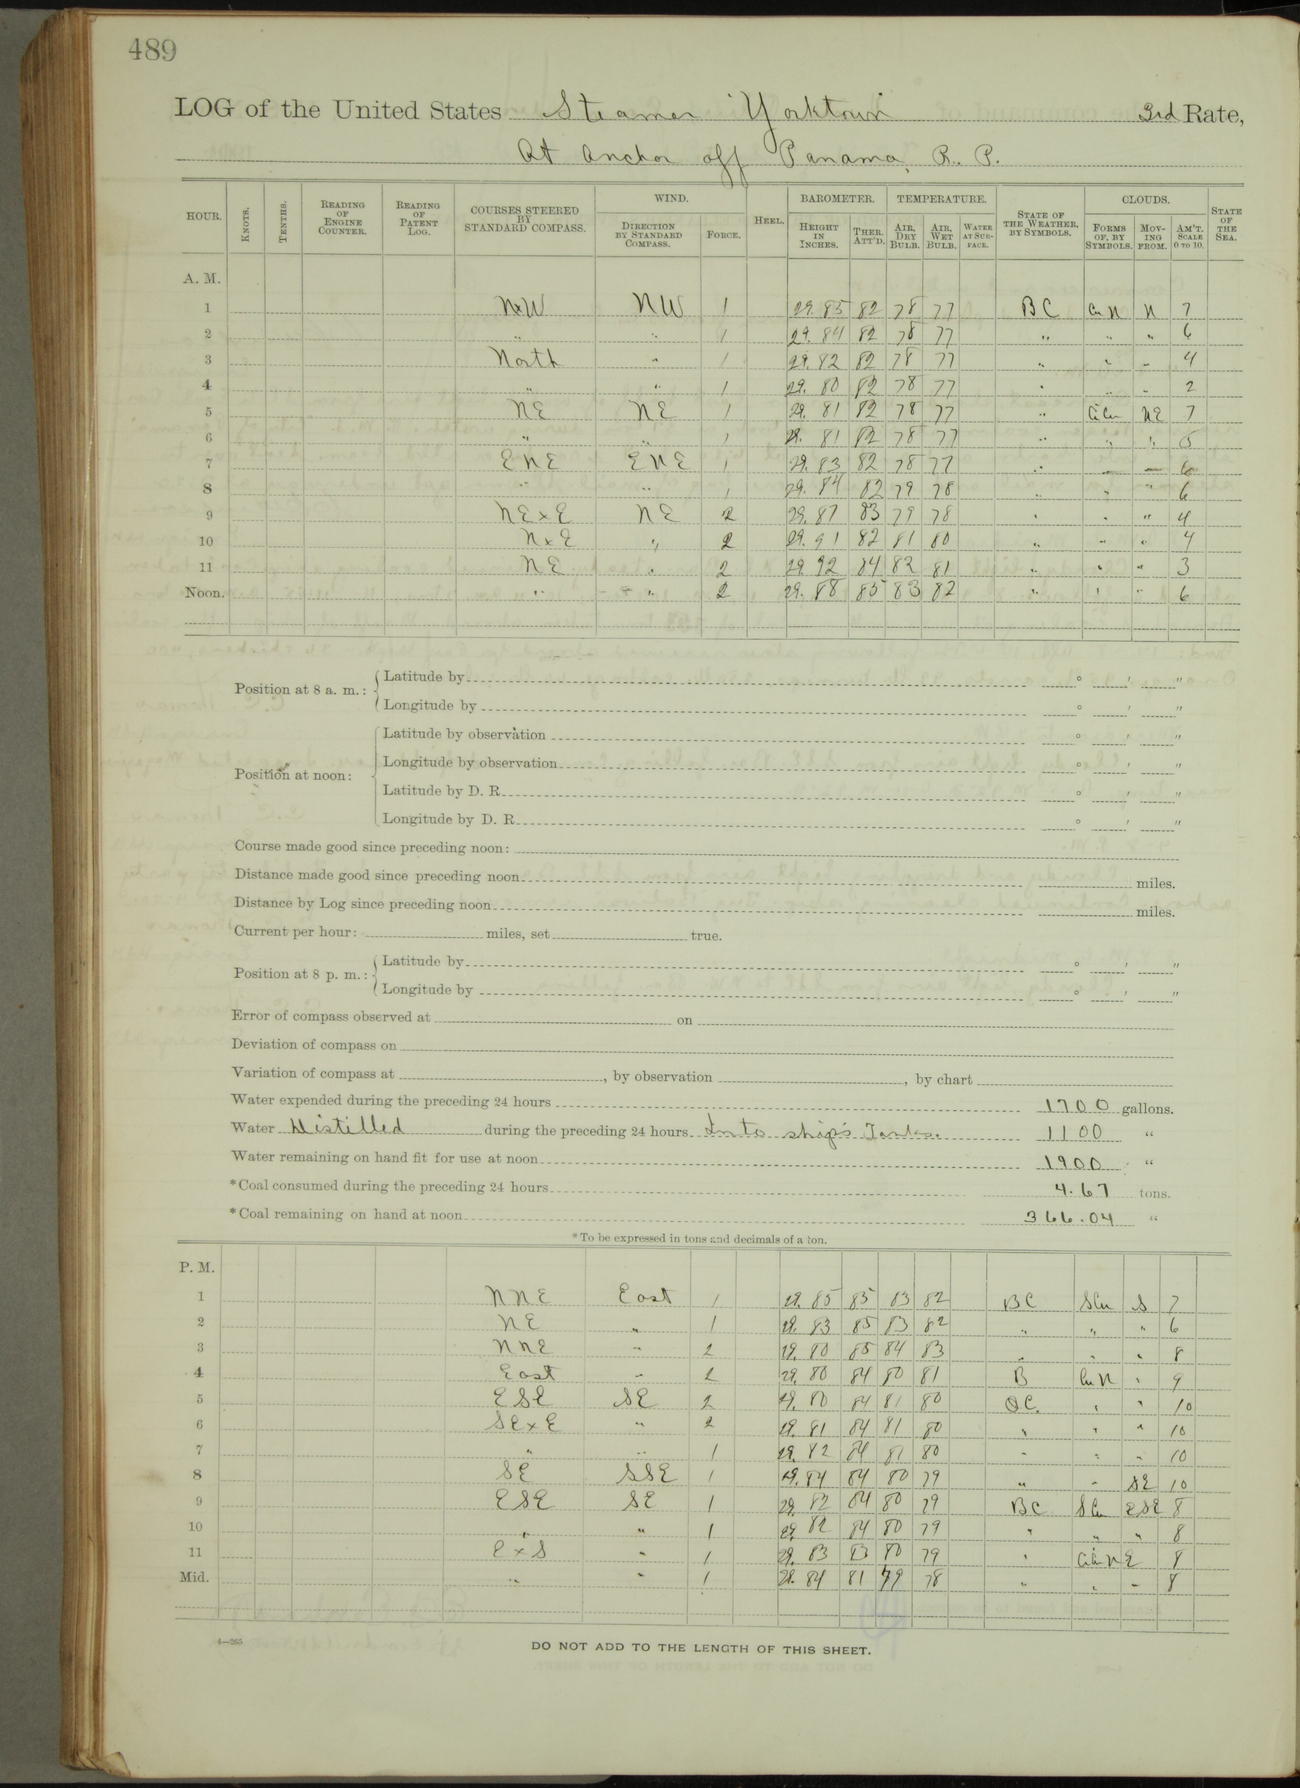 489
LOG of the United States Steamer "Yorktown" 3rd Rate,
At Anchor off Panama, R. P.
HOUR. KNOTS. TENTHS. READING OF ENGINE COUNTER. READING OF PATENT LOG. COURSES STEERED BY STANDARD COMPASS. WIND. DIRECTION BY STANDARD COMPASS. FORCE. HEEL. BAROMETER. HEIGHT IN INCHES. THER. ATT'D. TEMPERATURE. AIR, DRY BULB. AIR, WET BULB. WATER AT SURFACE. STATE OF THE WEATHER, BY SYMBOLS. CLOUDS. FORMS OF, BY SYMBOLS. MOVING FROM. AM'T. SCALE 0 TO 10. STATE OF THE SEA.
A. M.
1 NxW NW 1 29.85 82 78 77 BC CuN N 7
2 " " 1 29.84 82 78 77 " " " 6
3 North " 1 29.82 82 78 77 " " " 4
4 " " 1 29.80 82 78 77 " " " 2
5 NE NE 1 29.81 82 78 77 " CiCu NE 7
6 " " 1 29.81 82 78 77 " " " 5
7 ENE ENE 1 29.83 82 78 77 " " " 6
8 " " 1 29.84 82 79 78 " " " 6
9 NExE NE 2 29.87 83 79 78 " " " 4
10 NxE " 2 29.91 82 81 80 " " " 4
11 NE " 2 29.92 84 82 81 " " " 3
Noon. " " 2 29.88 85 83 82 " " " 6
Position at 8 a. m.: Latitude by ° ' "
Longitude by ° ' "
Position at noon: Latitude by observation ° ' "
Longitude by observation ° ' "
Latitude by D. R. ° ' "
Longitude by D. R. ° ' "
Course made good since preceding noon:
Distance made good since preceding noon miles.
Distance by Log since preceding noon miles.
Current per hour: miles, set true.
Position at 8 p. m.: Latitude by ° ' "
Longitude by ° ' "
Error of compass observed at on
Deviation of compass on
Variation of compass at , by observation , by chart
Water expended during the preceding 24 hours 1700 gallons.
Water Distilled during the preceding 24 hours Into ship's Tanks. 1100 "
Water remaining on hand fit for use at noon 1900 "
*Coal consumed during the preceding 24 hours 4.67 tons.
*Coal remaining on hand at noon 366.04 "
*To be expressed in tons and decimals of a ton.
P. M.
1 NNE East 1 29.85 85 83 82 BC SCu S 7
2 NE " 1 29.83 85 83 82 " " " 6
3 NNE " 2 29.80 85 84 83 " " " 8
4 East " 2 29.80 84 80 81 B CuN " 9
5 ESE SE 2 29.80 84 81 80 OC. " " 10
6 SExE " 2 29.81 84 81 80 " " " 10
7 " " 1 29.82 84 81 80 " " " 10
8 SE SSE 1 29.84 84 80 79 " " SE 10
9 ESE SE 1 29.82 84 80 79 BC SCu ESE 8
10 " " 1 29.82 84 80 79 " " " 8
11 ExS " 1 29.83 83 80 79 " CiCuN E 8
Mid. " " 1 29.84 81 79 78 " " " 8
4—265
DO NOT ADD TO THE LENGTH OF THIS SHEET.